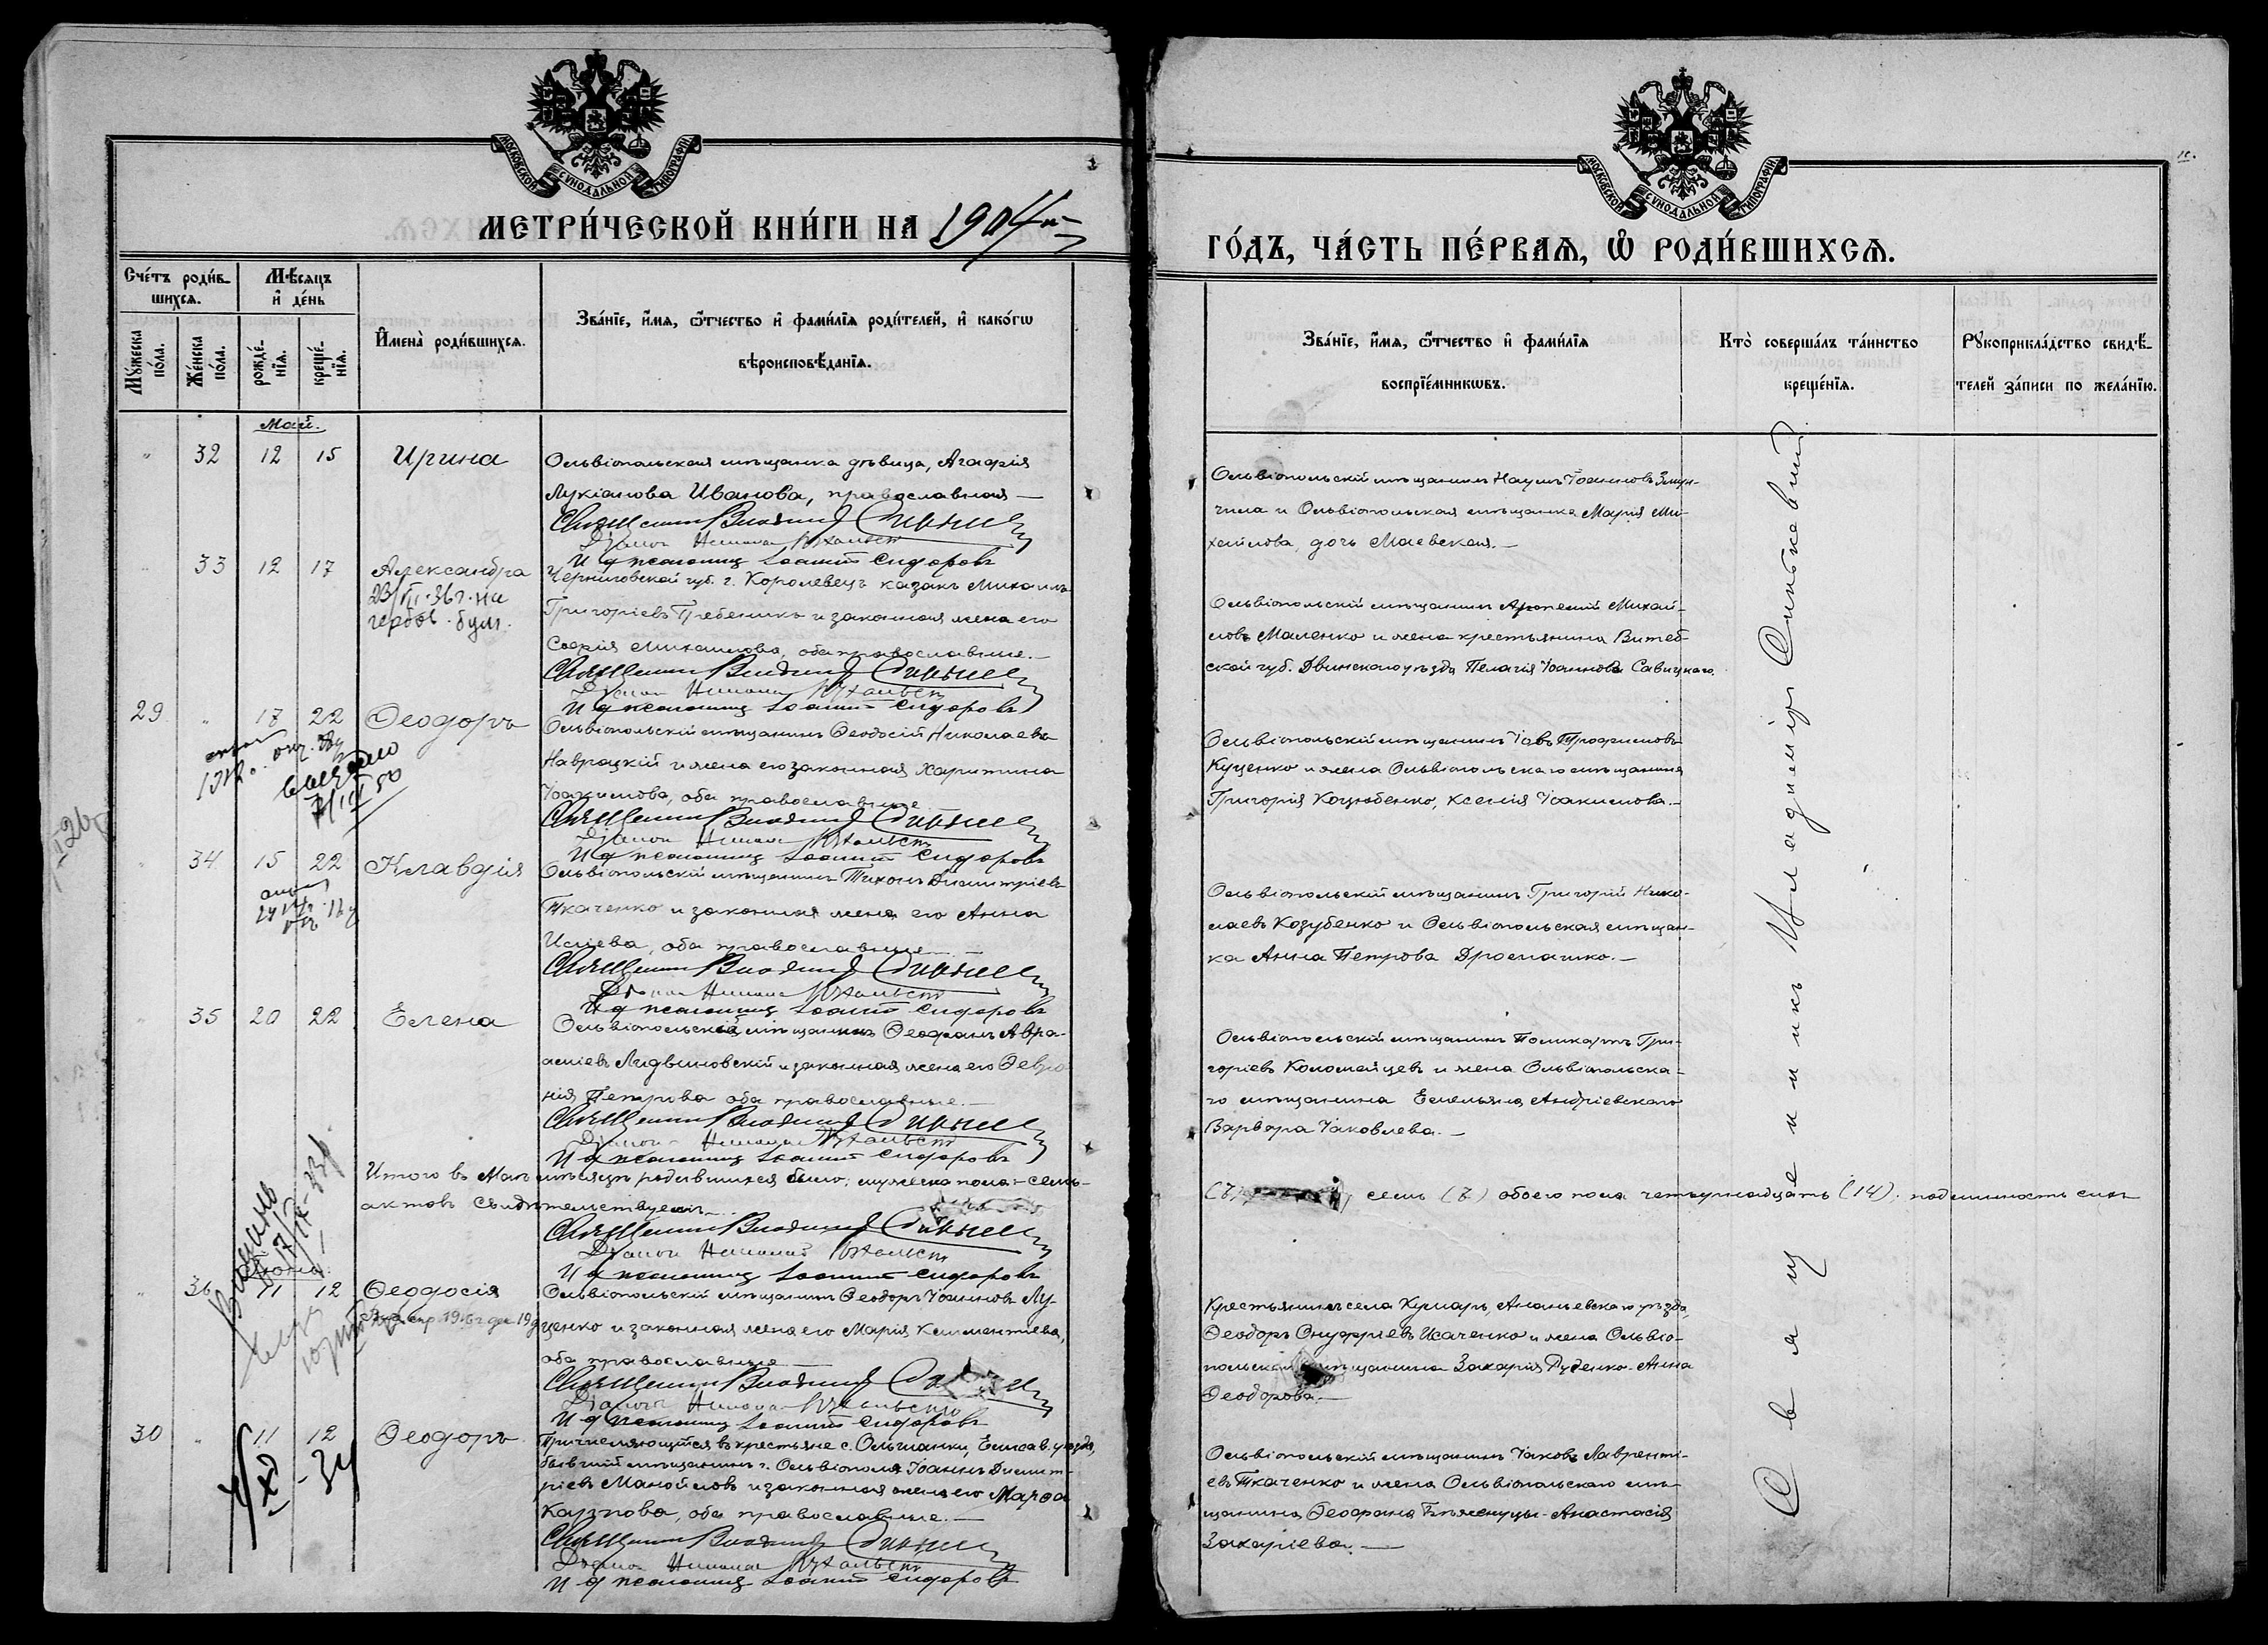 МОСКОВСКОЙ СѴНОДАЛЬНОЙ ТИПОГРАФІИ
МЕТРИ́ЧЕСКОЙ КНИ́ГИ НА 1904й
Счéтъ роди́в-
шихся.
Мѣ́сяцъ
и҆ дéнь
Мꙋ́жеска
пóла.
Жéнска
пóла.
рождé-
нїя.
крещé-
нїя.
И҆менà роди́вшихся.
Звáнїе, и҆́мя, ѻ҆́тчество и҆ фами́лїя роди́телей, и҆ какóгѡ
вѣроисповѣ́данїя.
Май.
32 12 15 Ирина
Ольвіопольская мѣщанка дѣвица, Агафія
Лукіанова Иванова, православная —
Священникъ Владимір
Діаконъ Николай
И д псаломщ Іоаннъ Сидоровъ
33 12 17 Александра
на
гербов. бум.
Черниговской губ. г. Королевецъ казакъ Михаилъ
Григоріевъ Гребеникъ и законная жена его
Софія Михаилова, оба православные. —
Священникъ Владимір
Діаконъ Николай
И д псаломщ Іоаннъ Сидоровъ
29 " 17 22 Ѳеодоръ
Ольвіопольскій мѣщанинъ Ѳеодосій Николаевъ
Навроцкій и жена его законная Харитина
Іоакимова, оба православные
Священникъ Владимір
Діаконъ Николай
И д псаломщ Іоаннъ Сидоровъ
34 15 22 Клавдія
Ольвіопольскій мѣщанинъ Тихонъ Димитріевъ
Ткаченко и законная жена его Анна
Исаева, оба православные —
Священникъ Владимір
Діаконъ Николай
И д псаломщ Іоаннъ Сидоровъ
35 20 22 Елена
Ольвіопольскій мѣщанинъ Ѳеофанъ Авра-
аміевъ Лидвиновскій и законная жена его Ѳевро
нія Петрова оба православные. —
Священникъ Владимір
Діаконъ Николай
И д псаломщ Іоаннъ Сидоровъ
Итого въ Маѣ мѣсяцѣ родившихся было: мужеска пола – семь
актовъ свидѣтельствуемъ
Священникъ Владимір
Діаконъ Николай
И д псаломщ Іоаннъ Сидоровъ
36 11 12 Ѳеодосія
Ольвіопольскій мѣщанинъ Ѳеодоръ Іоанновъ Лу-
ценко и законная жена его Марія Климентіева,
оба православные —
Священникъ Владимір
Діаконъ Николай
И д псаломщ Іоаннъ Сидоровъ
30 " 11 12 Ѳеодоръ
Причисляющійся въ крестьяне с. Ольшанки, Елисав. уѣзда,
бывшій мѣщанинъ г. Ольвіополя Іоаннъ Димит-
ріевъ Манойловъ и законная жена его Марѳа
Карпова, оба православные. —
Священникъ Владимір
Діаконъ Николай
И д псаломщ Іоаннъ Сидоровъ
МОСКОВСКОЙ СѴНОДАЛЬНОЙ ТИПОГРАФІИ
ГО́ДЪ, ЧА́СТЬ ПЕ́РВАЯ, Ѽ РОДИ́ВШИХСЯ.
Звáнїе, и҆́мя, ѻ҆́тчество и҆ фами́лїя
воспрїéмникѡвъ.
Ктò совершáлъ тáинство
крещéнїя.
Рꙋкоприклáдство свидѣ́-
телей зáписи по желáнїю.
Ольвіопольскій мѣщанинъ Наумъ Іоанновъ
и Ольвіопольская мѣщанка Марія Ми-
хаилова, дочь Маевская. —
Ольвіопольскій мѣщанинъ Михай-
ловъ Маленко и жена крестьянина Витеб-
ской губ. Двинскаго уѣзда Пелагія Іоаннова Савицкаго.
Ольвіопольскій мѣщанинъ Іовъ Трофимовъ
Куценко и жена Ольвіопольскаго мѣщанина
Григорія Коцюбенко, Ксенія Іоакимова. —
Ольвіопольскій мѣщанинъ Григорій Нико-
лаевъ Козубенко и Ольвіопольская мѣщан-
ка Анна Петрова Дромашко. —
Ольвіопольскій мѣщанинъ Поликарпъ Гри-
горіевъ Коломайцевъ и жена Ольвіопольска-
го мѣщанина Емельяна Андріевскаго
Варвара Іаковлева. —
(7) семь (7) обоего пола четырнадцать (14). подлинность сихъ
Крестьянинъ села Кумаръ, Ананьевскаго уѣзда,
Ѳеодоръ Онуфріевъ Исаченко и жена Ольвіо-
польскаго мѣщанина Захарія Руденко – Анна
Ѳеодорова. —
Ольвіопольскій мѣщанинъ Іаковъ Лавренті-
евъ Ткаченко и жена Ольвіопольскаго мѣ-
щанина Ѳеофана – Анастасія
Захаріева. —
Священникъ Владиміръ Синькевичъ